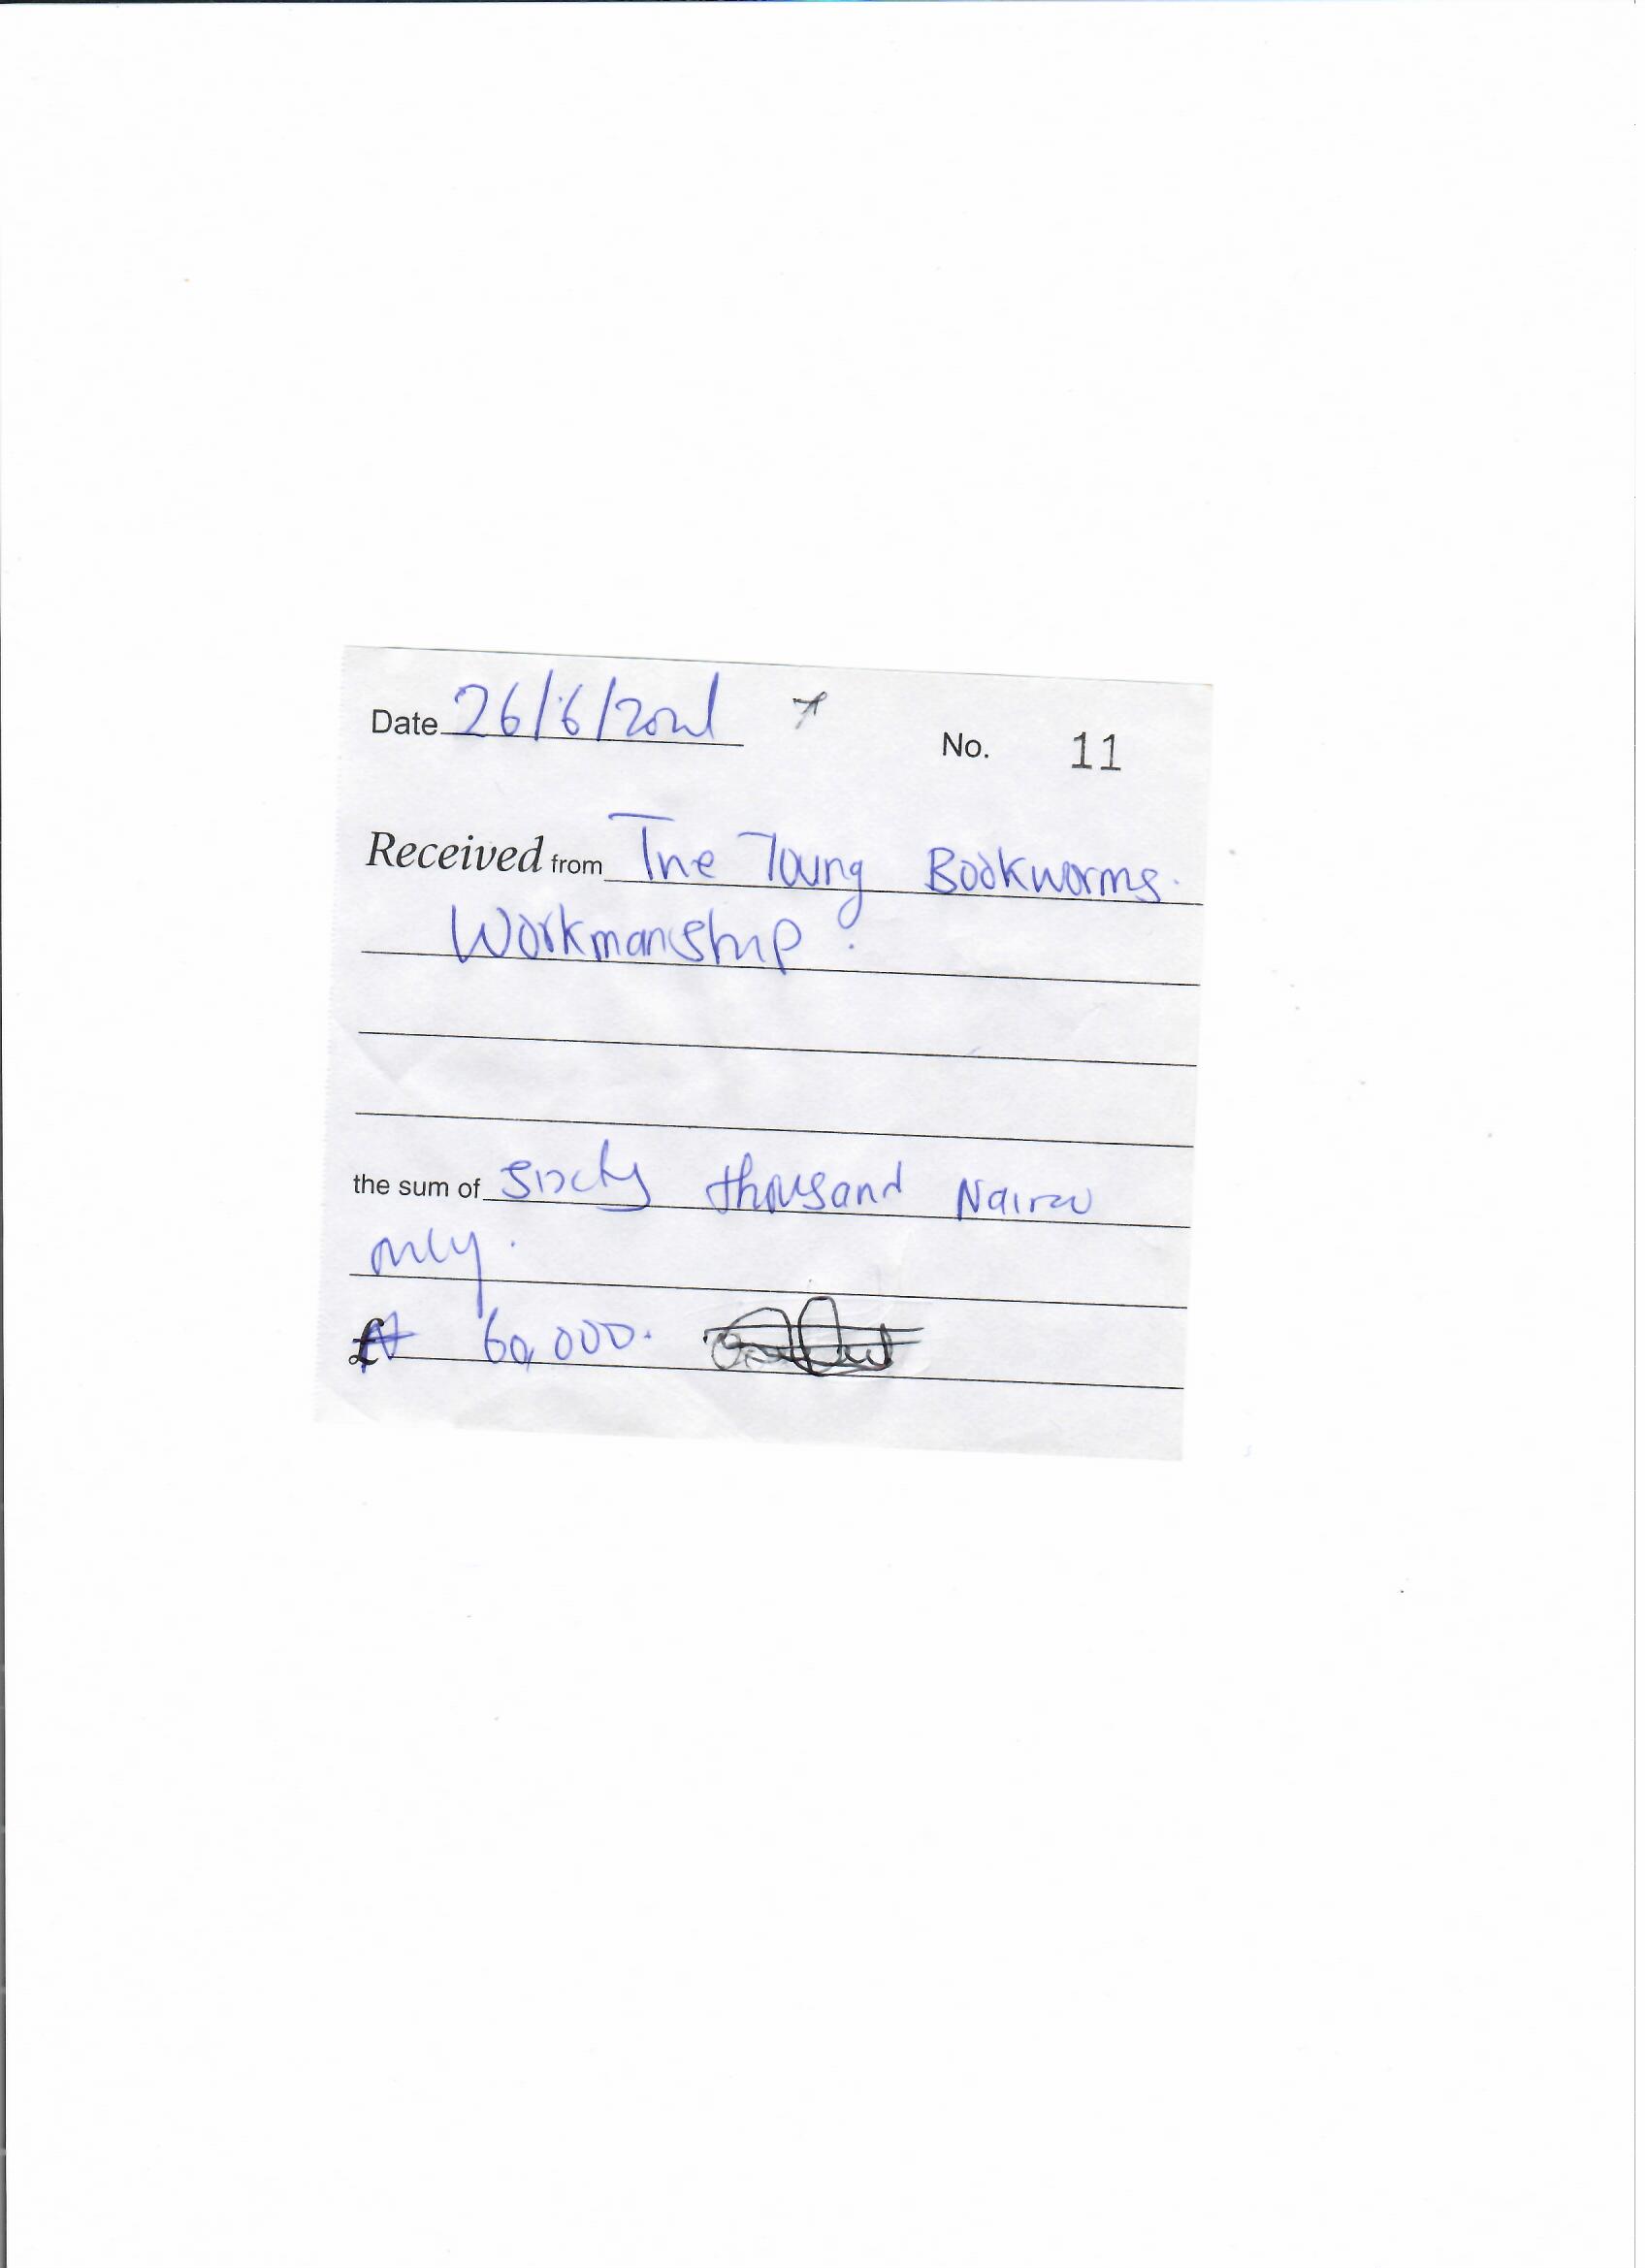 Date 26/6/2021
No. 11
Received from The Young Bookworms.
Workmanship.
the sum of Sixty thousand Naira
only.
₦ 60,000.